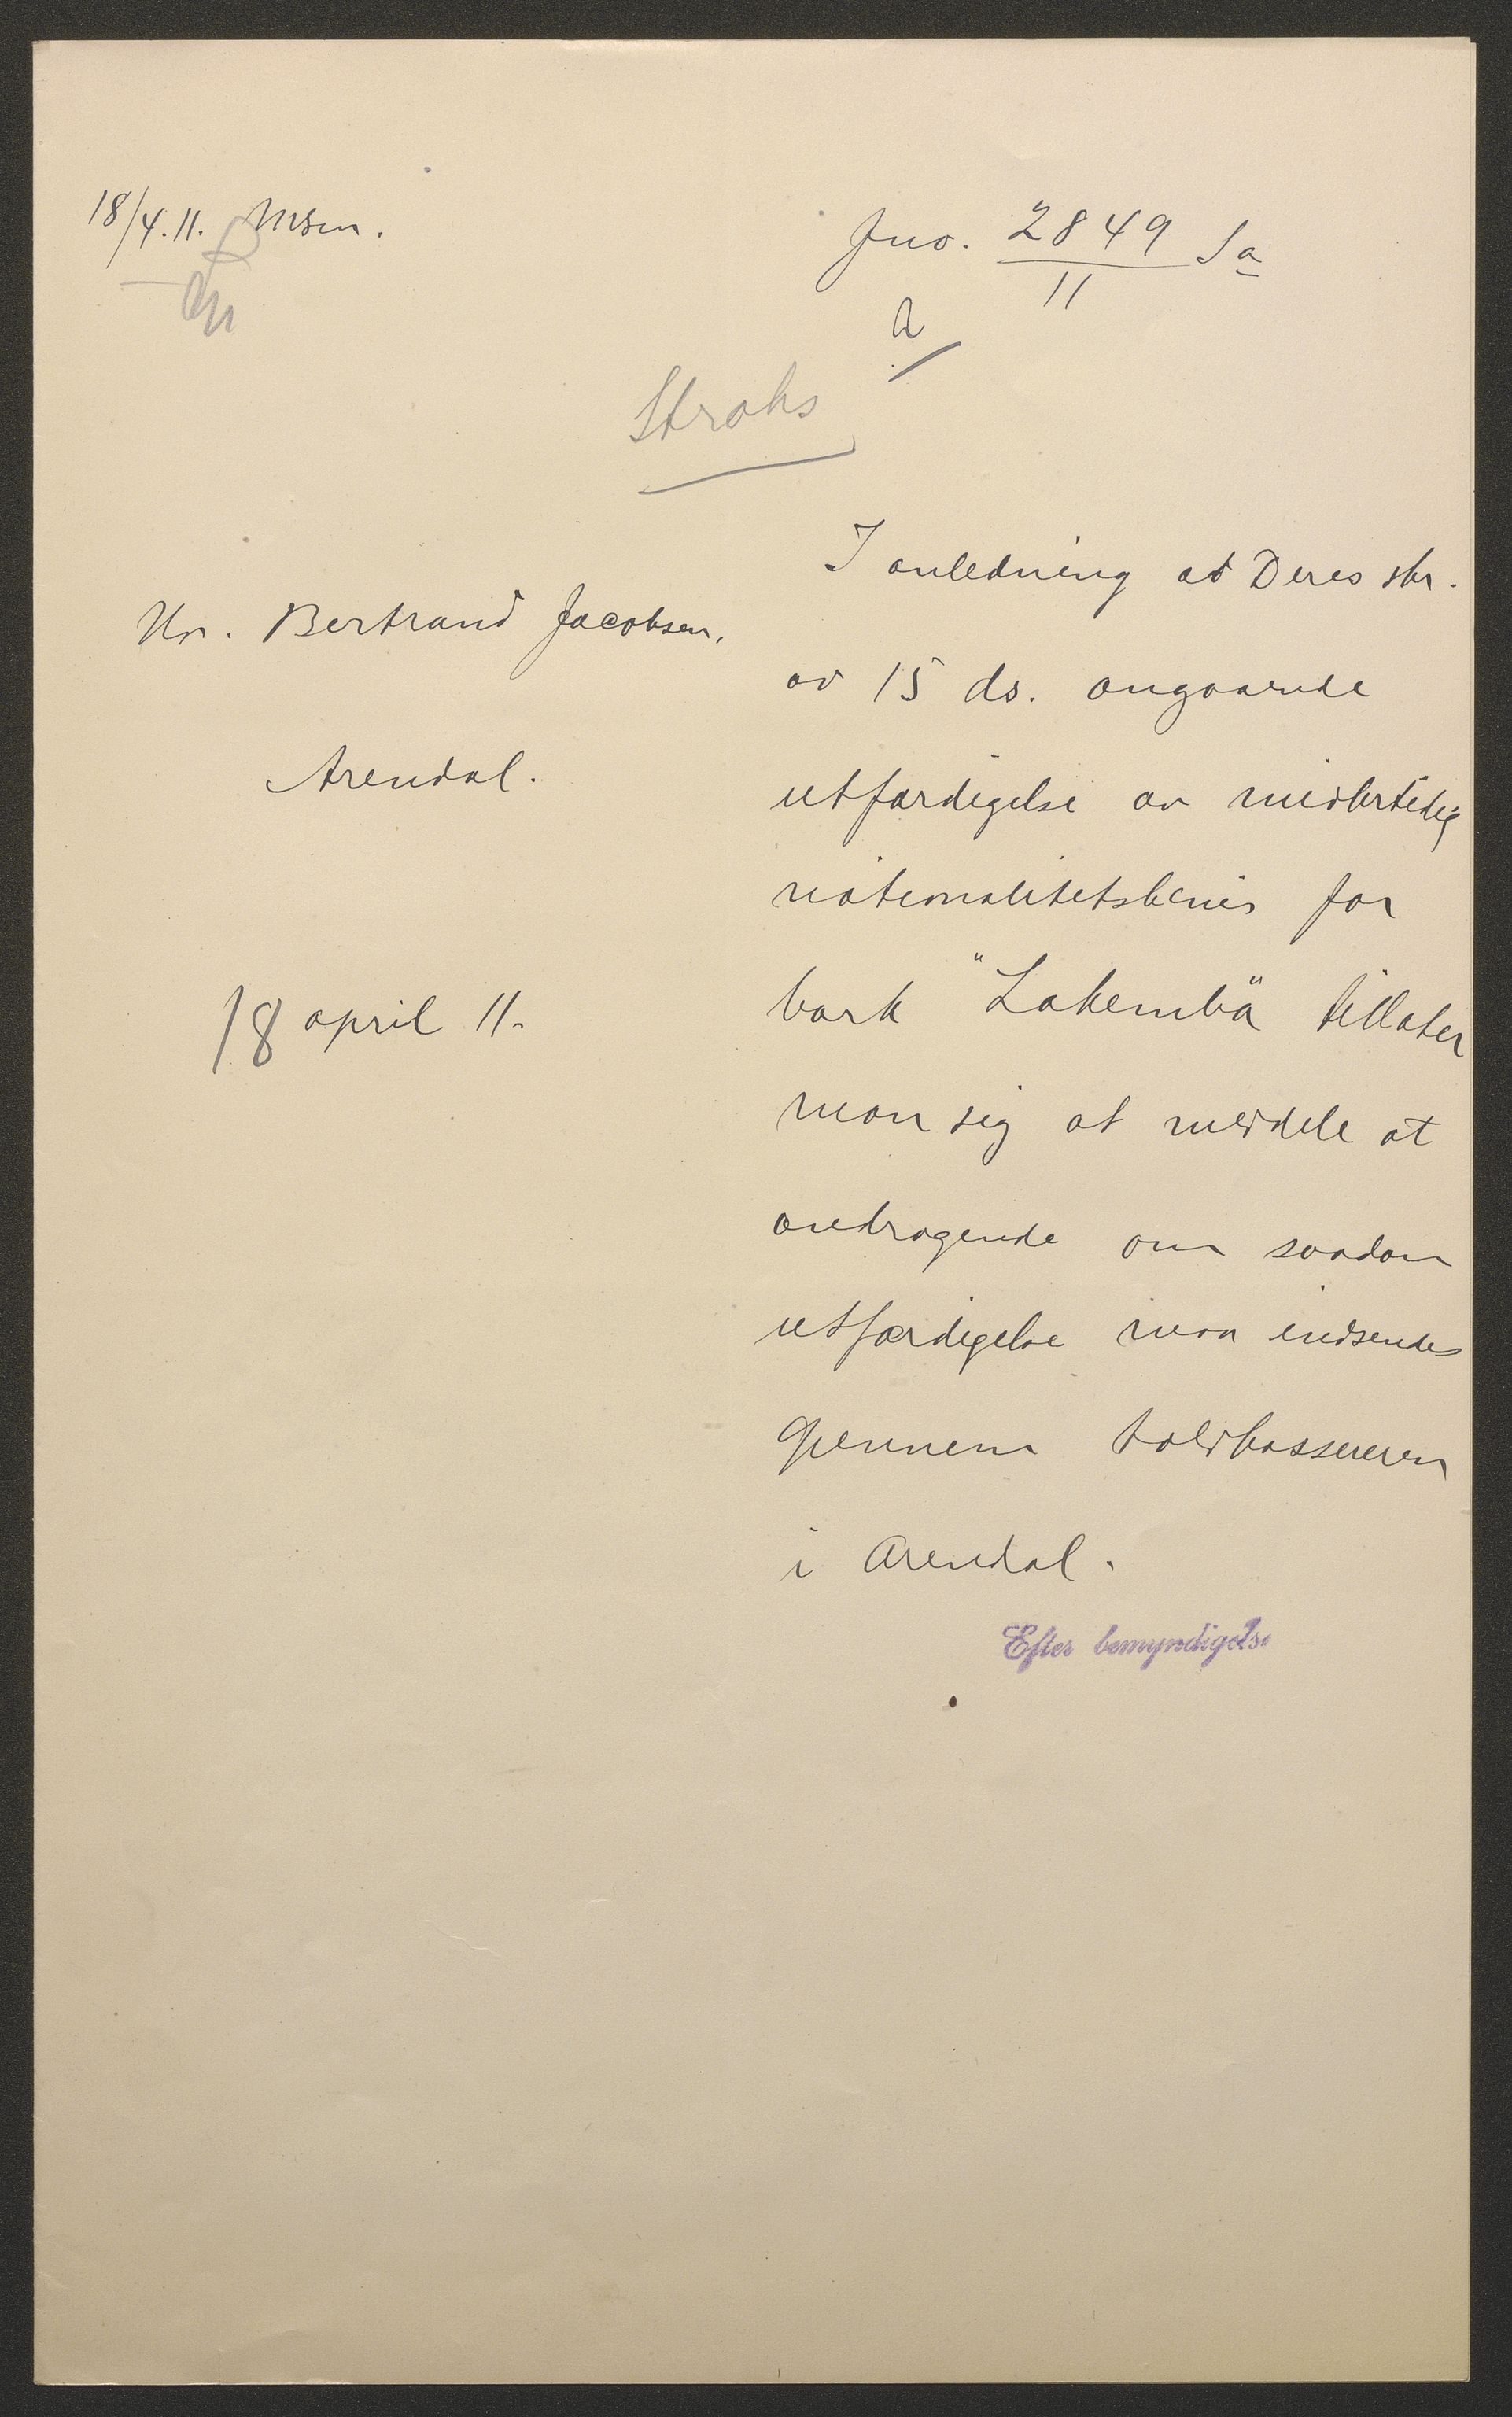 18/4.11. Msm.
Jno. 2849 Sa
11
Straks
Hr. Bertrand Jacobsen,
Arendal.
18 april 11.
I anledning af Deres skr.
av 15 ds. angaaende
utfærdigelse av midlertidig
nationalitetsbevis for
bark "Lakemba" tillater
man sig at meddele at
andragende om saadan
utfærdigelse maa indsendes
gjennem toldkassereren
i Arendal.
Efter bemyndigelse